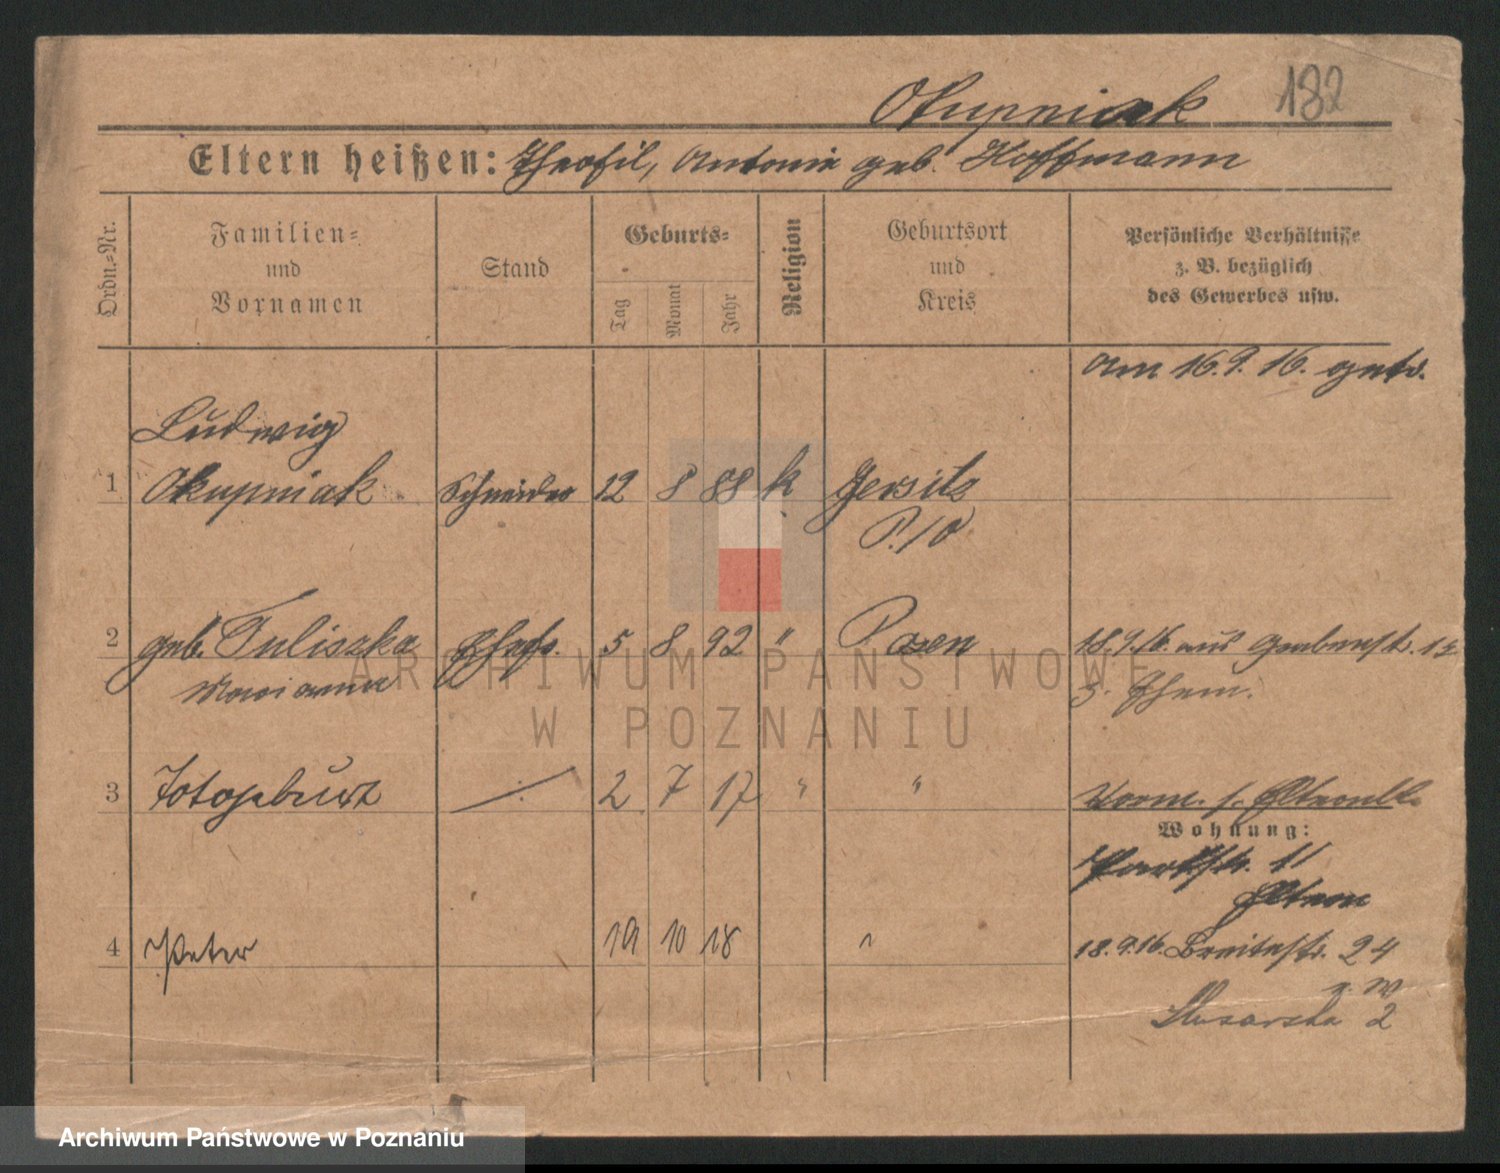 Okupniak 182
Eltern heißen: Theofil, Antonie geb. Hoffmann
Ordn.-Nr.
Familien-
und
Vornamen
Stand
Geburts-
Tag
Monat
Jahr
Religion
Geburtsort
und
Kreis
Persönliche Verhältnisse
z. B. bezüglich
des Gewerbes usw.
Am 16.9.16. getr.
Ludwig
1 Okupniak Schneider 12 8 88 k Jersitz
P./O
2 geb. Tuliszka Ehefr. 5 8 92 " Posen 18.9.16. aus Grabenstr.
Marianna z. Ehem.
3 Totgeburt ·/. 2 7 17 " "
Wohnung:
Parkstr. 11
Eltern
4 Peter 19 10 18 " 18.9.16. Breitestr. 24
Slusarska 2
ARCHIWUM PAŃSTWOWE
W POZNANIU
Archiwum Państwowe w Poznaniu